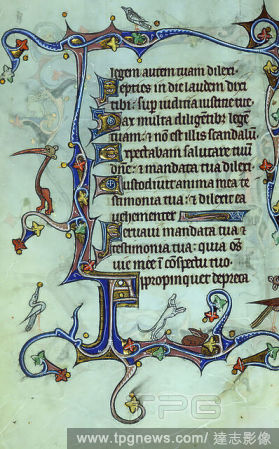 legem autem tuam dilexi.
Septies in die laudem dixi
tibi: sup iudicia iusticie tue.
Pax multa diligentib; lege
tuam: & nō est illis scandalū.
Expectabam salutare tuū
dñe: & mandata tua dilexi.
Custodiuit anima mea te
stimonia tua: & dilexit ea
uehementer.
Seruaui mandata tua &
testimonia tua: quia oēs
uie mee ī cōspectu tuo.
Appropinquet depreca
TPG
www.tpgnews.com/ 達志影像